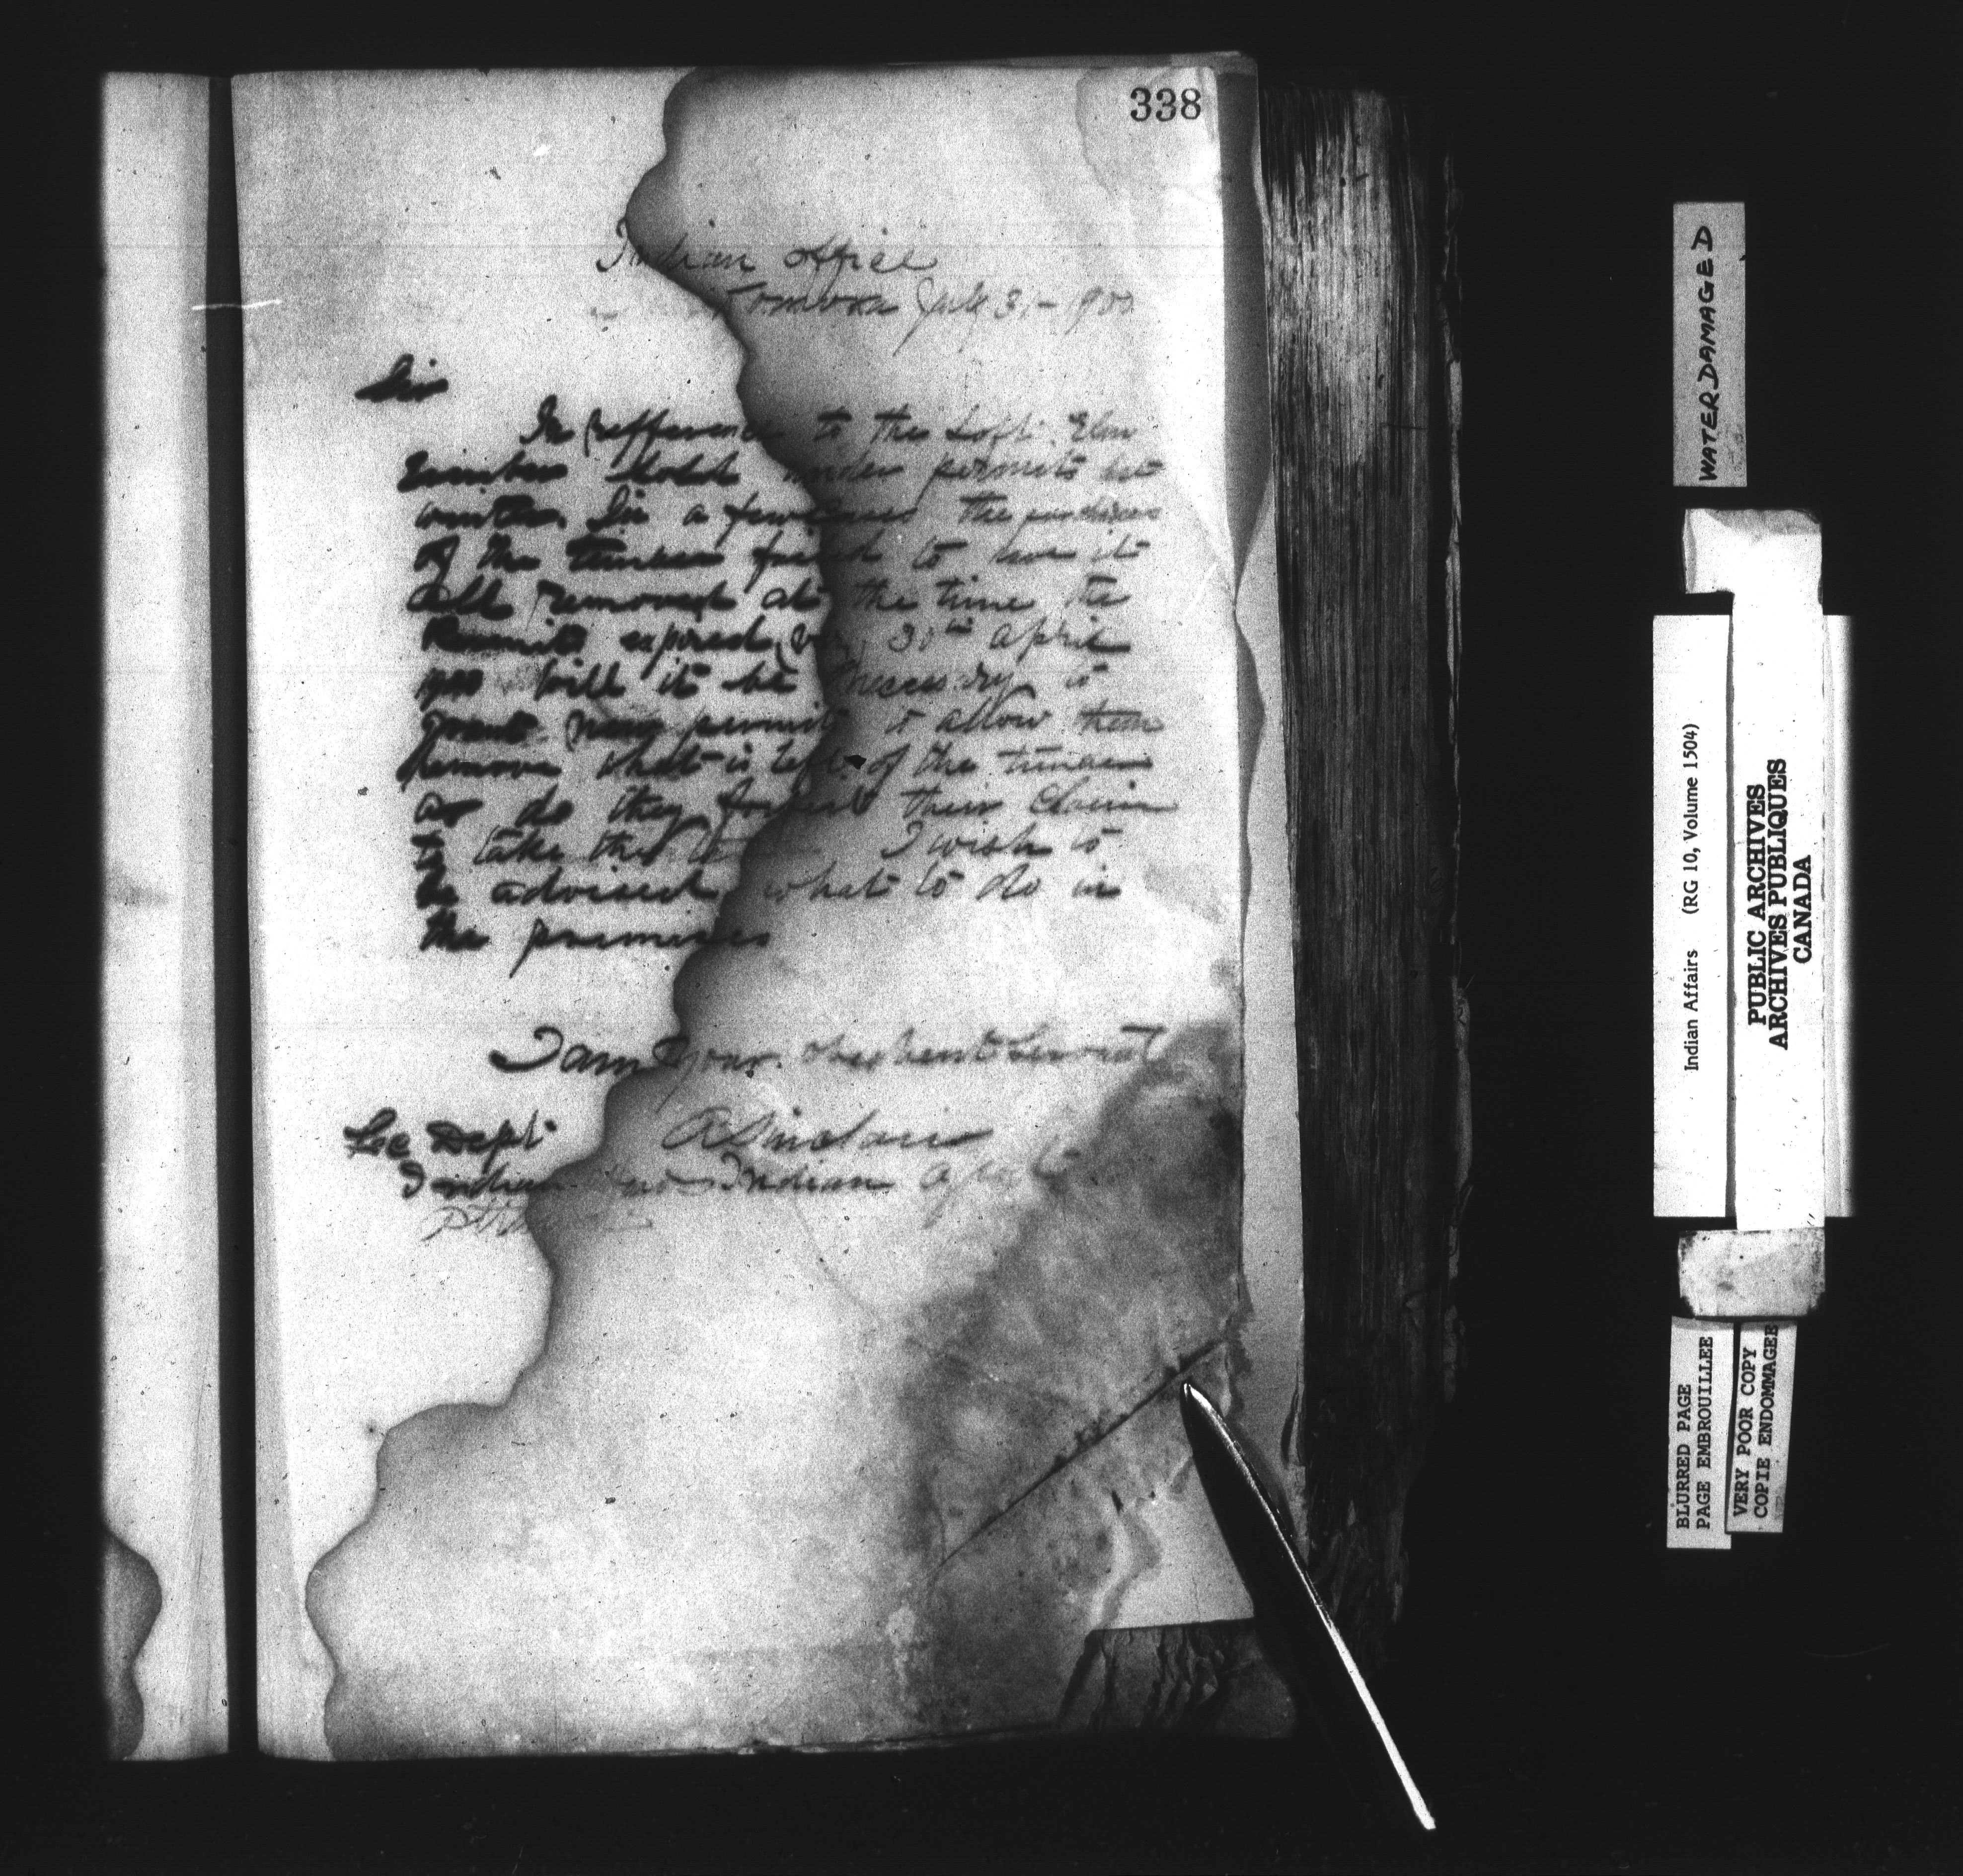 338
Indian office
July 31 - 1900
Sir
In refference to the Soft Elm
timber sold under permits last
winter. In a few cases the purchasers
of the timber failed to have it
all removed at the time the
Permits expired viz 30th april
1900 Will it be necessary to
grant new permit to allow them
Remove what is left of the timber
or do they forfeit their Claim
to take the I wish to
be advised what to do in
the premises
I am your obedient Servant
A Sinclair
Dept
Indian Indian Agent
WATER DAMAGED
Indian Affairs (RG 10, Volume 1504)
PUBLIC ARCHIVES
ARCHIVES PUBLIQUES
CANADA
BLURRED PAGE
PAGE EMBROUILLEE
VERY POOR COPY
COPIE ENDOMMAGEE